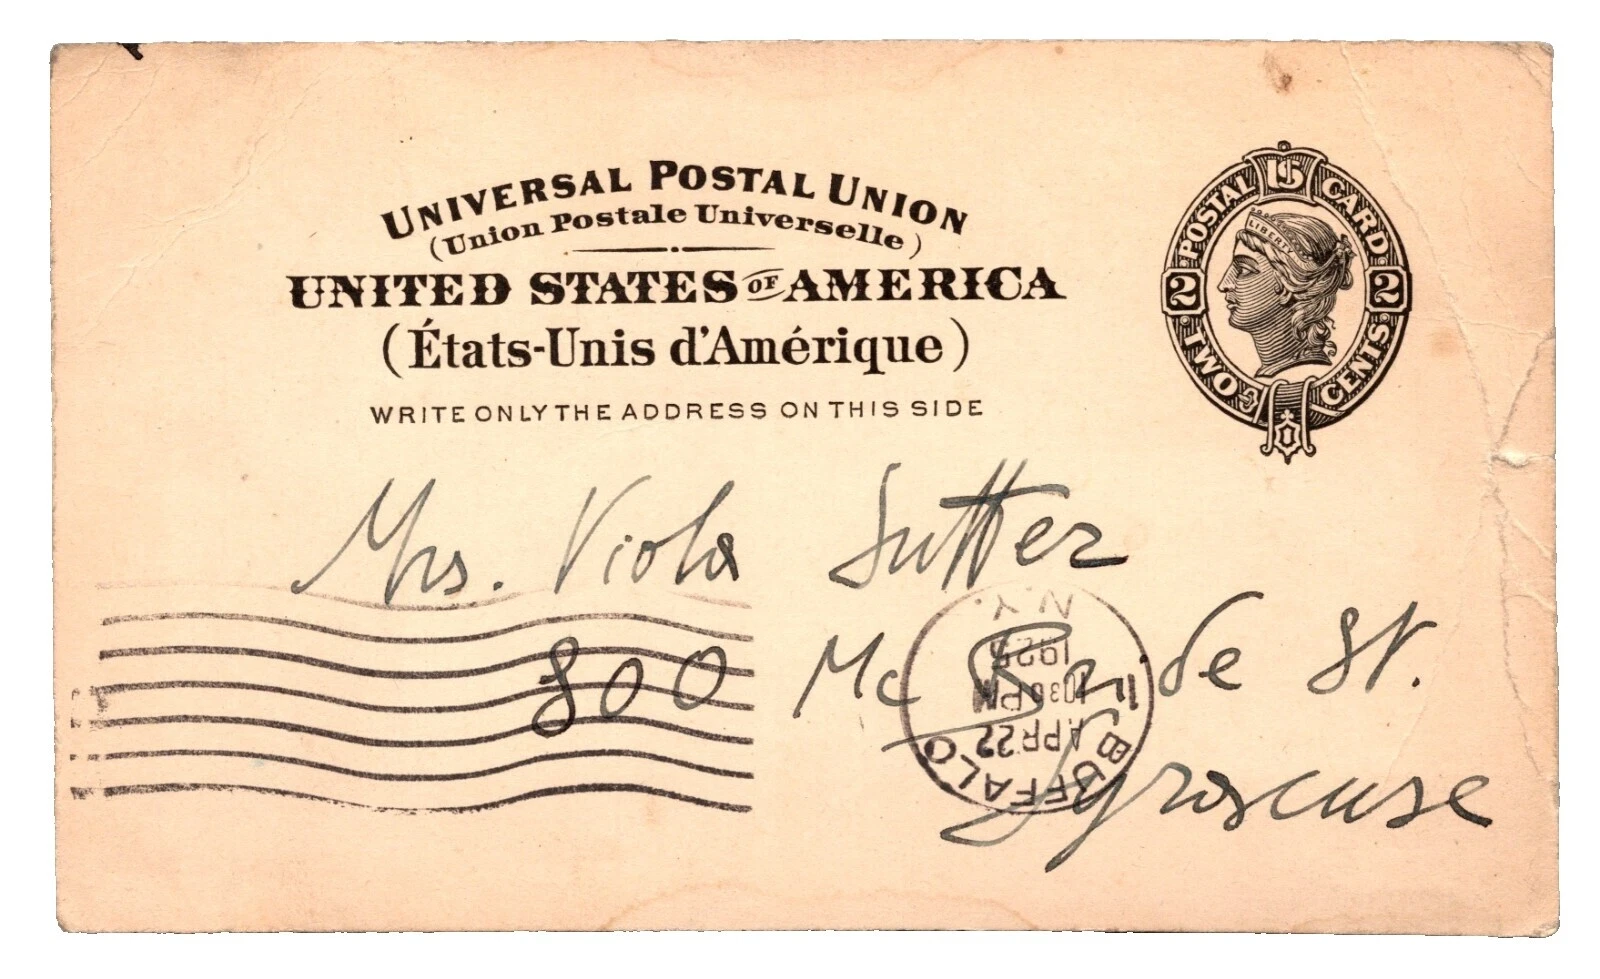 UNIVERSAL POSTAL UNION
(Union Postale Universelle)
UNITED STATES OF AMERICA
(États-Unis d'Amérique)
WRITE ONLY THE ADDRESS ON THIS SIDE
POSTAL CARD
U S
LIBERTY
2 2
TWO CENTS
Mrs. Viola Sutter
800 Mc Bride St.
Syracuse
BUFFALO
APR 22
1030 PM
1925
N.Y.